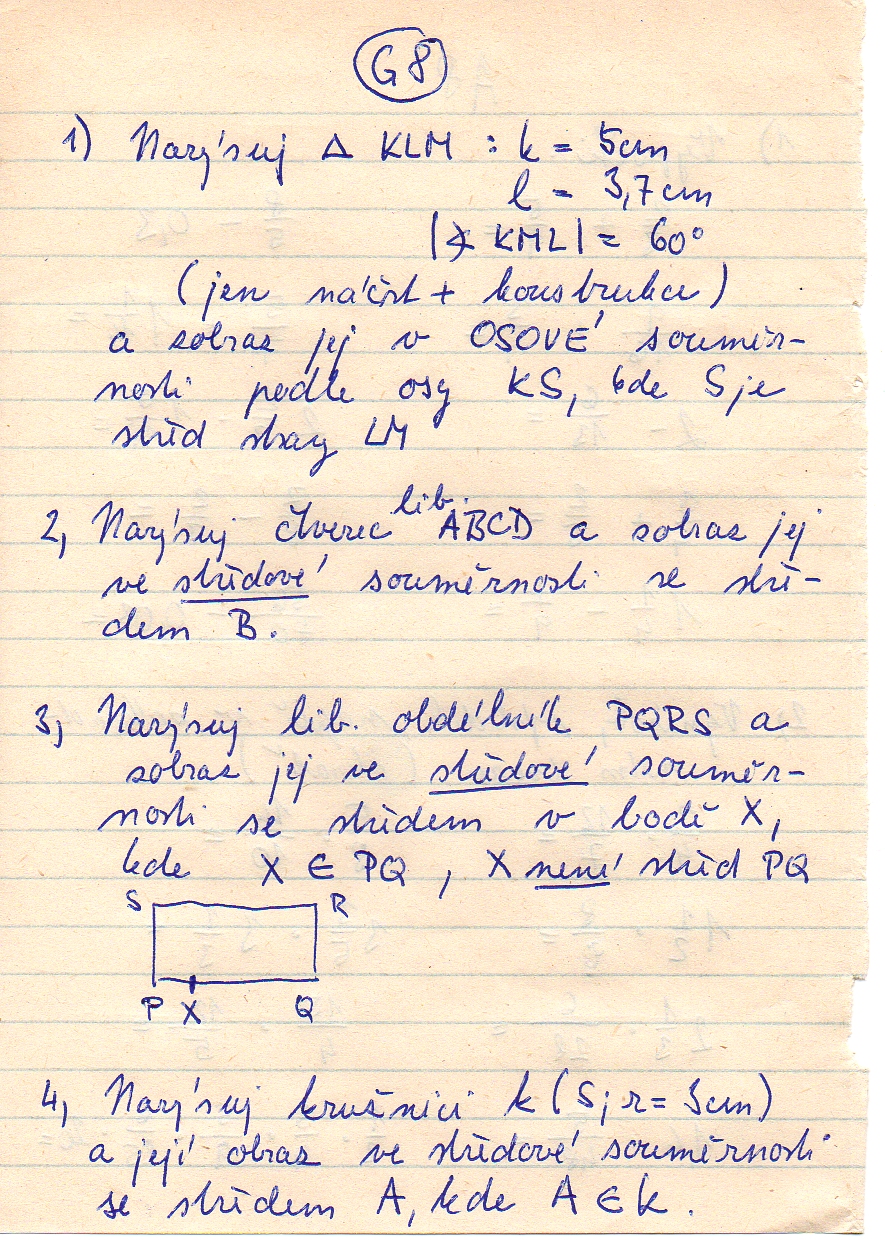 G8
1) Narýsuj △ KLM : k = 5cm
l = 3,7cm
|∢ KML| = 60°
(jen náčrt + konstrukci)
a zobraz jej v OSOVÉ souměr-
nosti podle osy KS, kde S je
střed strany LM
2, Narýsuj čtverec lib. ABCD a zobraz jej
ve středové souměrnosti se stře-
dem B.
3, Narýsuj lib. obdélník PQRS a
zobraz jej ve středové souměr-
nosti se středem v bodě X,
kde X ∈ PQ , X není střed PQ
S R
P X Q
4, Narýsuj kružnici k (S; r = 3cm)
a její obraz ve středové souměrnosti
se středem A, kde A ∈ k.